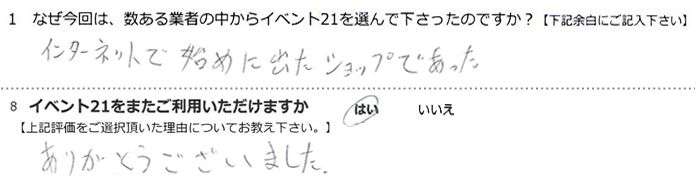 1 なぜ今回は、数ある業者の中からイベント21を選んで下さったのですか？【下記余白にご記入下さい】
インターネットで始めに出たショップであった
8 イベント21をまたご利用いただけますか はい いいえ
【上記評価をご選択頂いた理由についてお教え下さい。】
ありがとうございました.